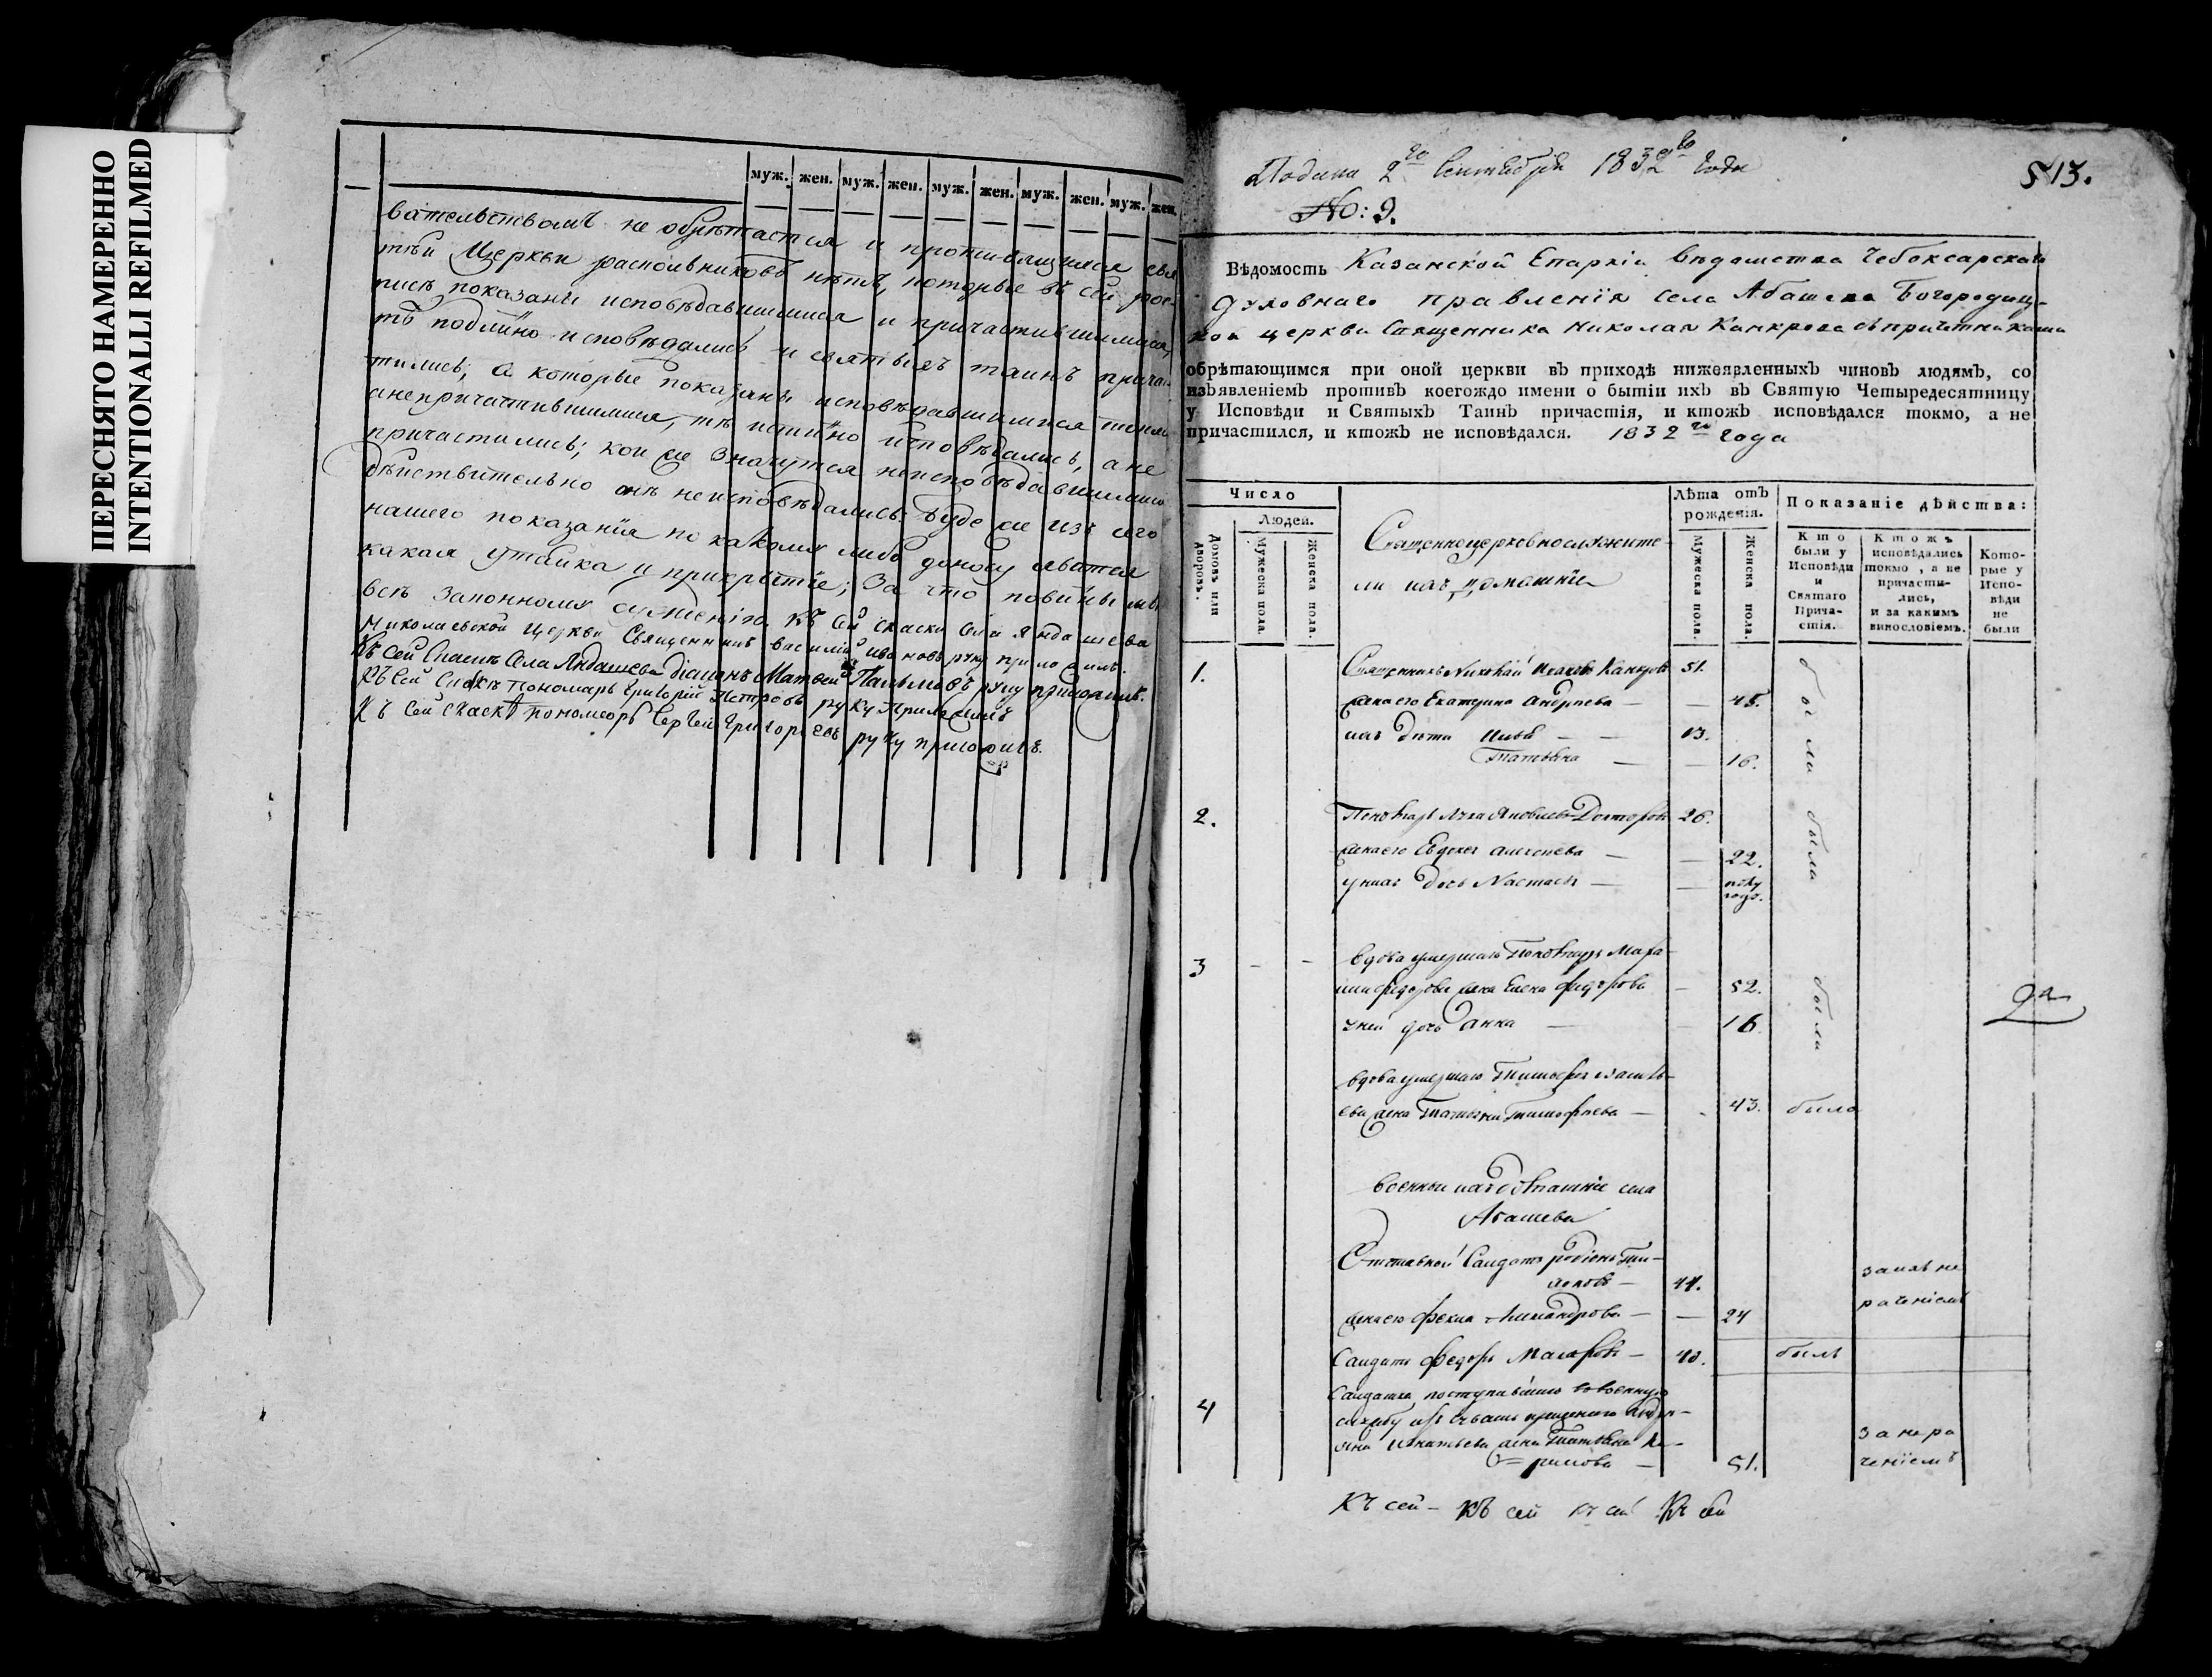 ПЕРЕСНЯТО НАМЕРЕННО
INTENTIONALLI REFILMED
муж. жен. муж. жен. муж. жен. муж. жен. муж. жен.
вательствомъ не обрѣтается и противящихся свя
тѣй Церкви раскольниковъ нѣтъ, которые въ сей рос-
писѣ показаны исповѣдавшимися и причастившимися,
тѣ подлинно исповѣдались и святыхъ таинъ прича
тились; а которые показаны исповѣдавшимися токмо
анепричастившимися, тѣ истинно исповѣдались, а не
причастились; кои же значутся неисповѣдавшимися
дѣйствительно онѣ неисповѣдались. Буде же изъ сего
нашего показанія по какому либо доносу явится
какая утайка и прикрытіе; За что повинны мы
всѣ законному сужденію. Къ сей скаски села Яндашева
Николаевской Церкви Священникъ Василій Ивановъ руку приложилъ.
Къ сей Скаскѣ Села Яндашева Діаконъ Матвей Пальмовъ руку приложилъ.
Къ Сей Скаскѣ Пономарь Григорій Петровъ руку Приложилъ
Къ Сей скаскѣ пономарь Сергей Григорьевъ руку приложилъ.
Подана 2го Сентября 1832го года
513.
No: 9.
Вѣдомость Казанской Епархіи Вѣдомства Чебоксарскаго
Духовнаго правленія села Абашева Богородиц-
кой церкви Священника Николая Канкрова съ причетниками
обрѣтающимся при оной церкви въ приходѣ нижеявленныхъ чиновъ людямъ, со
изъявленіемъ противъ коегождо имени о бытіи ихъ въ Святую Четыредесятницу
у Исповѣди и Святыхъ Таинъ причастія, и ктожъ исповѣдался токмо, а не
причастился, и ктожъ не исповѣдался. 1832го года
Число
Людей.
Домовъ или дворовъ.
Мужеска пола.
Женска пола.
Священноцерковнослужите-
ли ихъ домашніе
Лѣта отъ рожденія.
Мужеска пола.
Женска пола.
Показаніе дѣйства:
Кто были у Исповѣди и Святаго Прича- стія.
Ктожъ исповѣдались токмо, а не причасти- лись, и за какимъ винословіемъ.
Кото- рые у Испо- вѣди не были
1. Священникъ Николай Канкровъ 51.
жена его Екатерина Андреева — — 45.
ихъ дѣти — — 13.
Татьяна — — 16.
были
2. Пономарь Лука Яковлевъ Докторовъ 26.
жена его Евдокея Алексеева — — 22.
у нихъ дочь Настасья — — полу годъ.
были
3 — — вдова умершаго Пономаря
Федорова жена Елена Федорова — 52.
у ней дочь Анна — — 16
были
да
вдова умершаго Тимофея Василь-
ева жена Татьяна Тимофеева — - 43. была
Военныи ихъ домашніе села
Абашева
Отставной Салдатъ Родіонъ
— 44.
жена его Фекла Никандрова — — 24
за ихъ не
раченіемъ
Салдатъ Федоръ — 40. былъ
4 Салдатка поступившаго въ военную
службу изъ чувашъ крещенаго Андре-
яна Игнатьева жена Татьяна Ки-
рилова — 51.
за нера
ченіемъ
Къ сей — Къ сей Къ сей Къ сей